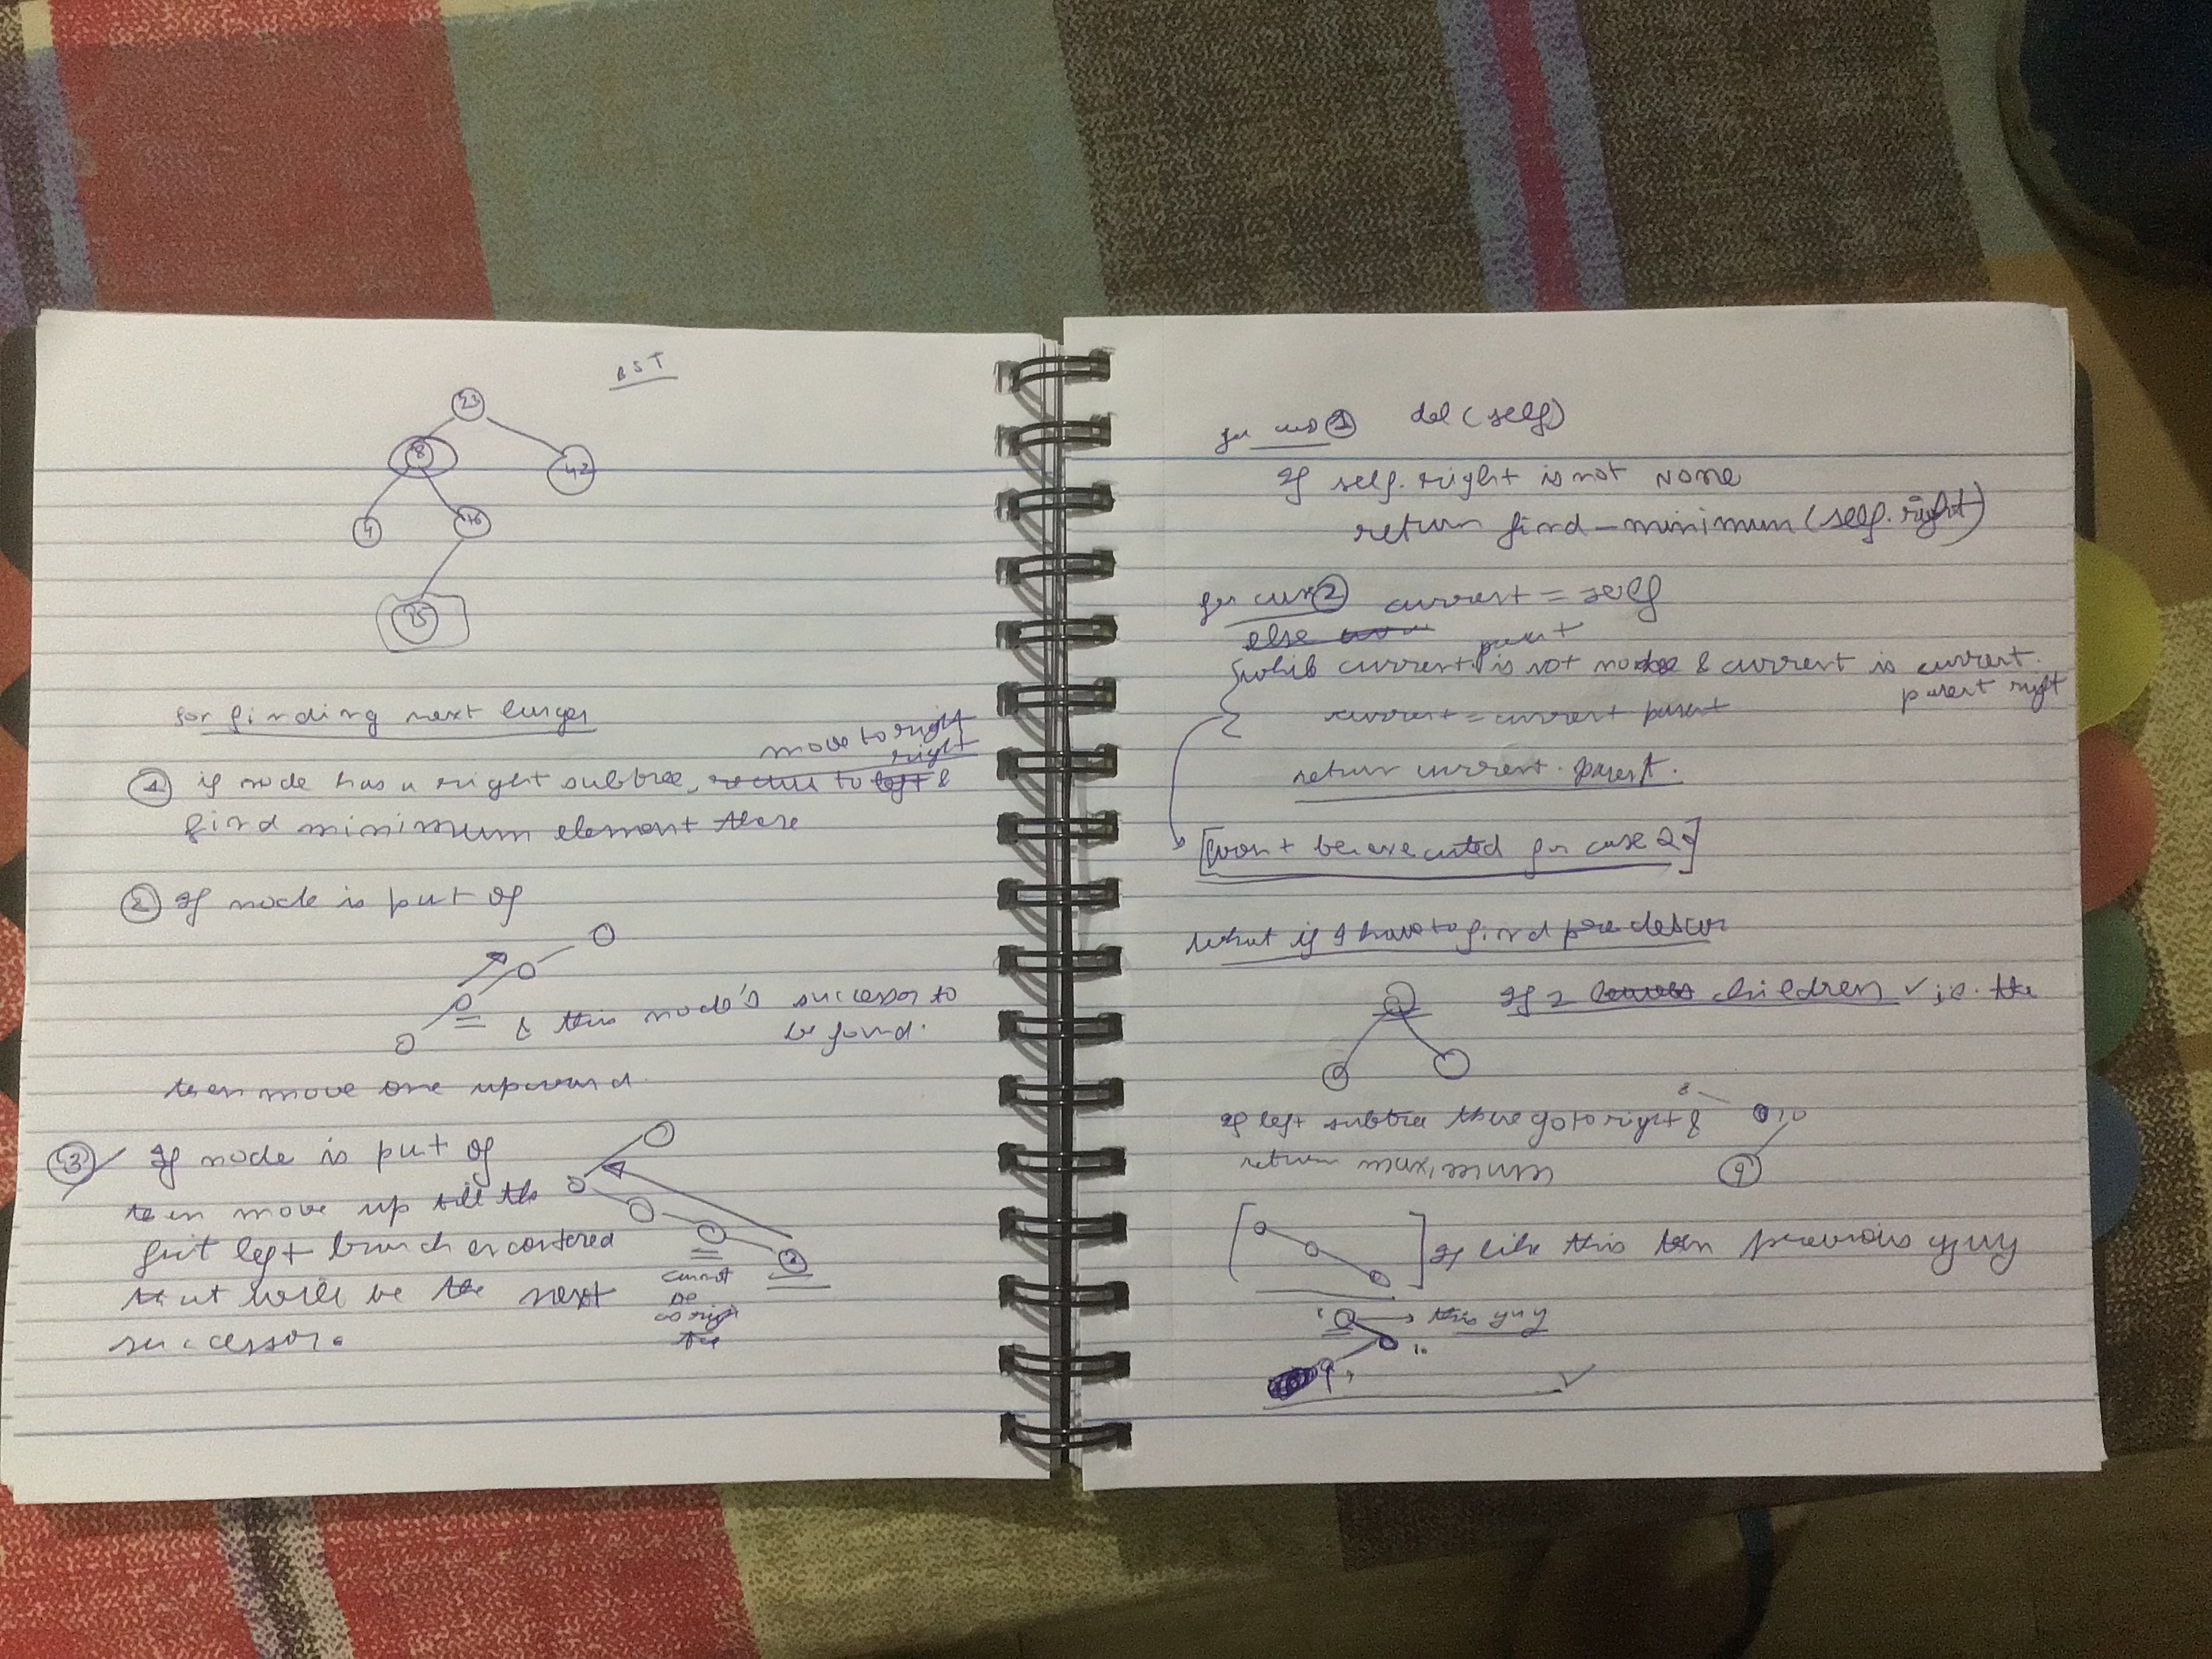 BST
23
8
42
4
16
15
for finding next larger
move to right
right
① if node has a right subtree, to left &
find minimum element there
② If node is put of
this node's successor to
be found.
then move one upward
③ If node is put of
then move up till the
first left branch encontered
that will be the next
successor.
cannot
be
as right
tree
for case ① def (self)
If self.right is not None
return find_minimum (self.right)
for case ② current = self
else
parent
while current. is not node & current is current.
parent right
current = current parent
return current. parent.
[won't be executed for case 2]
What if I have to find predescor
If 2 leaves children ✓ is the
If left subtree there go to right &
return maximum
8
10
9
[ ] If like this then previous guy
→ this guy
10
9